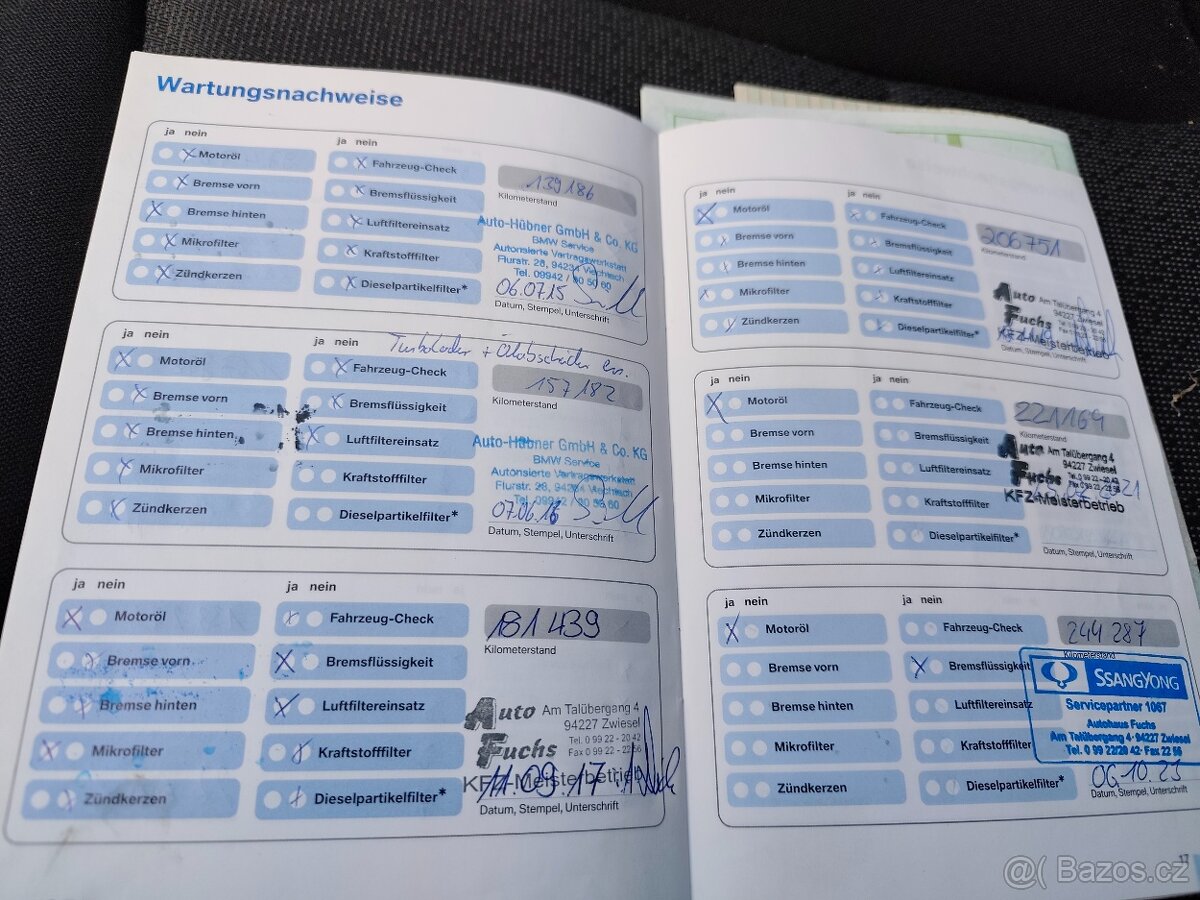 Wartungsnachweise
ja nein
ja nein
Motoröl
Fahrzeug-Check
139 186
Bremse vorn
Bremsflüssigkeit
Kilometerstand
Bremse hinten
Luftfiltereinsatz
Auto-Hübner GmbH & Co. KG
BMW Service
Mikrofilter
Kraftstofffilter
Autorisierte Vertragswerkstatt
Flurstr. 28, 94234 Viechtach
Zündkerzen
Dieselpartikelfilter*
Tel. 09942 / 80 50 60
06.07.15
Datum, Stempel, Unterschrift
ja nein
ja nein
Turbolader + Ölabscheider ern.
Motoröl
Fahrzeug-Check
157 182
Bremse vorn
Bremsflüssigkeit
Kilometerstand
Bremse hinten
Luftfiltereinsatz
Auto-Hübner GmbH & Co. KG
BMW Service
Mikrofilter
Kraftstofffilter
Autorisierte Vertragswerkstatt
Flurstr. 28, 94234 Viechtach
Zündkerzen
Dieselpartikelfilter*
Tel. 09942 / 80 50 60
07.06.16
Datum, Stempel, Unterschrift
ja nein
ja nein
Motoröl
Fahrzeug-Check
181 439
Bremse vorn
Bremsflüssigkeit
Kilometerstand
Bremse hinten
Luftfiltereinsatz
Auto Am Talübergang 4
94227 Zwiesel
Mikrofilter
Kraftstofffilter
Fuchs Tel. 0 99 22 - 20 42
Fax 0 99 22 - 22 56
Zündkerzen
Dieselpartikelfilter*
KFZ-Meisterbetrieb
11.09.17
Datum, Stempel, Unterschrift
ja nein
ja nein
Motoröl
Fahrzeug-Check
206751
Bremse vorn
Bremsflüssigkeit
Kilometerstand
Bremse hinten
Luftfiltereinsatz
Mikrofilter
Kraftstofffilter
Auto Am Talübergang 4
94227 Zwiesel
Zündkerzen
Dieselpartikelfilter*
Fuchs
KFZ-Meisterbetrieb
Datum, Stempel, Unterschrift
ja nein
ja nein
Motoröl
Fahrzeug-Check
221169
Bremse vorn
Bremsflüssigkeit
Kilometerstand
Bremse hinten
Luftfiltereinsatz
Auto Am Talübergang 4
94227 Zwiesel
Mikrofilter
Kraftstofffilter
Fuchs Tel. 0 99 22 - 20 42
Fax 0 99 22 - 22 56
KFZ-Meisterbetrieb
Zündkerzen
Dieselpartikelfilter*
Datum, Stempel, Unterschrift
ja nein
ja nein
Motoröl
Fahrzeug-Check
244 287
Bremse vorn
Bremsflüssigkeit
Kilometerstand
SSANGYONG
Bremse hinten
Luftfiltereinsatz
Servicepartner 1067
Autohaus Fuchs
Mikrofilter
Kraftstofffilter
Am Talübergang 4 · 94227 Zwiesel
Tel. 0 99 22/20 42 · Fax 22 56
Zündkerzen
Dieselpartikelfilter*
06.10.23
Datum, Stempel, Unterschrift
17
@( Bazos.cz